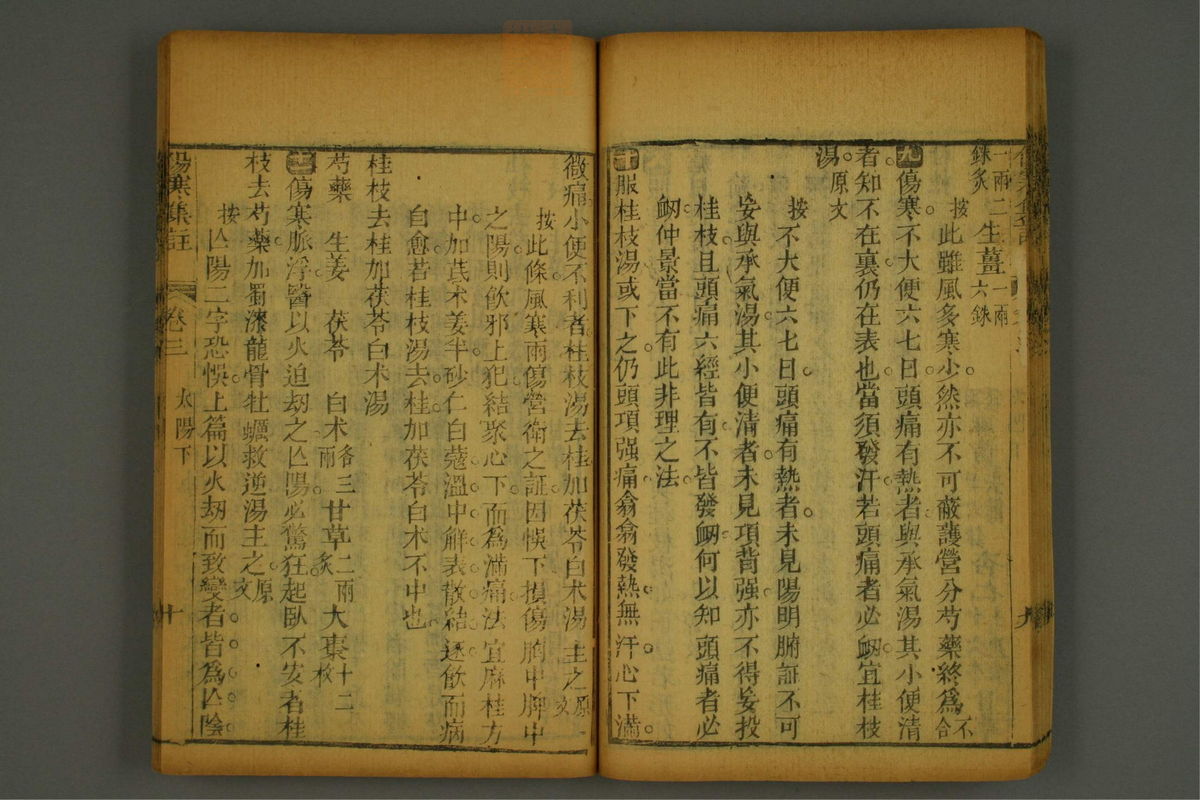 一兩二銖炙 生薑一兩六銖
按此雖風多寒少然亦不可蔽護營分芍藥終爲不合
九傷寒不大便六七日頭痛有熱者與承氣湯其小便清
者知不在裏仍在表也當須發汗若頭痛者必衂宜桂枝
湯原文
按不大便六七日頭痛有熱者未見陽明腑証不可
妄與承氣湯其小便清者未見項背强亦不得妄投
桂枝且頭痛六經皆有不皆發衂何以知頭痛者必
衂仲景當不有此非理之法
十服桂枝湯或下之仍頭項强痛翕翕發熱無汗心下滿
微痛小便不利者桂枝湯去桂加茯苓白术湯主之原文
按此條風寒兩傷營衛之証因悞下損傷胸中脾中
之陽則飲邪上犯結聚心下而爲滿痛法宜麻桂方
中加芪术姜半砂仁白蔻溫中解表散結逐飲而病
自愈若桂枝湯去桂加茯苓白术不中也
桂枝去桂加茯苓白术湯
芍藥 生姜 茯苓 白术各三兩 甘草二兩炙 大棗十二枚
十一傷寒脈浮醫以火迫劫之亾陽必驚狂起臥不安者桂
枝去芍藥加蜀漆龍骨牡蠣救逆湯主之原文
按亾陽二字恐悞上篇以火劫而致變者皆爲亾陰
傷寒集註 卷三 太陽下 十